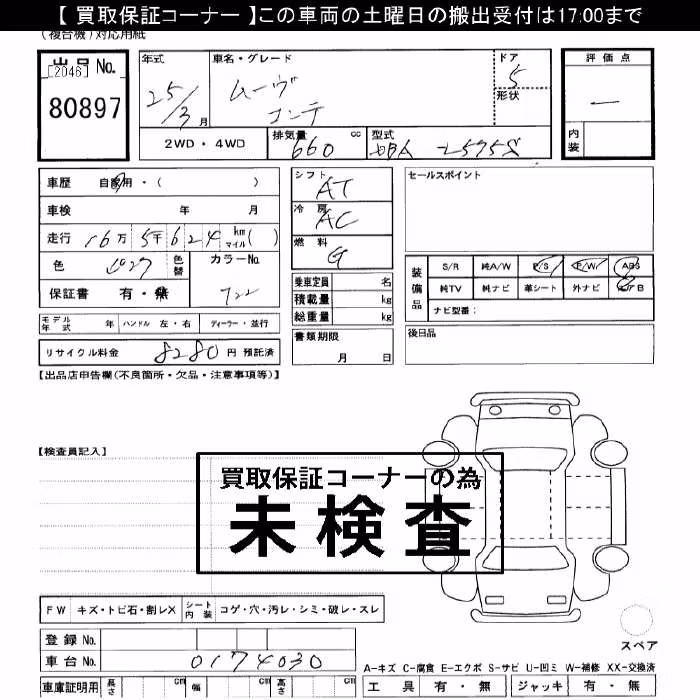 【 買取保証コーナー 】この車両の土曜日の搬出受付は17:00まで
(複合機)対応用紙
出品 No.
[2046]
80897
年式
25/3 月
車名・グレード
ムーヴ
コンテ
ドア
5
形状
評価点
—
内装
2WD ・ 4WD
排気量 cc
660
型式
DBA L575S
車歴 自家用 ・ ( )
車検 年 月
走行 16万 5千 624 km マイル ( )
色 色替 カラーNo.
722
保証書 有 ・ 無
シフト
AT
冷房
AC
燃料
G
乗車定員 名
積載量 kg
総重量 kg
セールスポイント
装備品
S/R 純A/W P/S P/W ABS
純TV 純ナビ 革シート 外ナビ エアB
ナビ型番:
モデル年式 年 ハンドル 左・右 ディーラー・並行
書類期限
月 日
後日品
リサイクル料金 8280 円 預託済
【出品店申告欄(不良箇所・欠品・注意事項等)】
【検査員記入】
買取保証コーナーの為
未検査
FW キズ・トビ石・割レX シート内装 コゲ・穴・汚レ・シミ・破レ・スレ
登録 No.
車台 No. 0174030
スペア
A−キズ C−腐食 E−エクボ S−サビ U−凹ミ W−補修 XX−交換済
車庫証明用 長さ cm 幅 cm 高さ cm
工具 有 ・ 無 ジャッキ 有 ・ 無